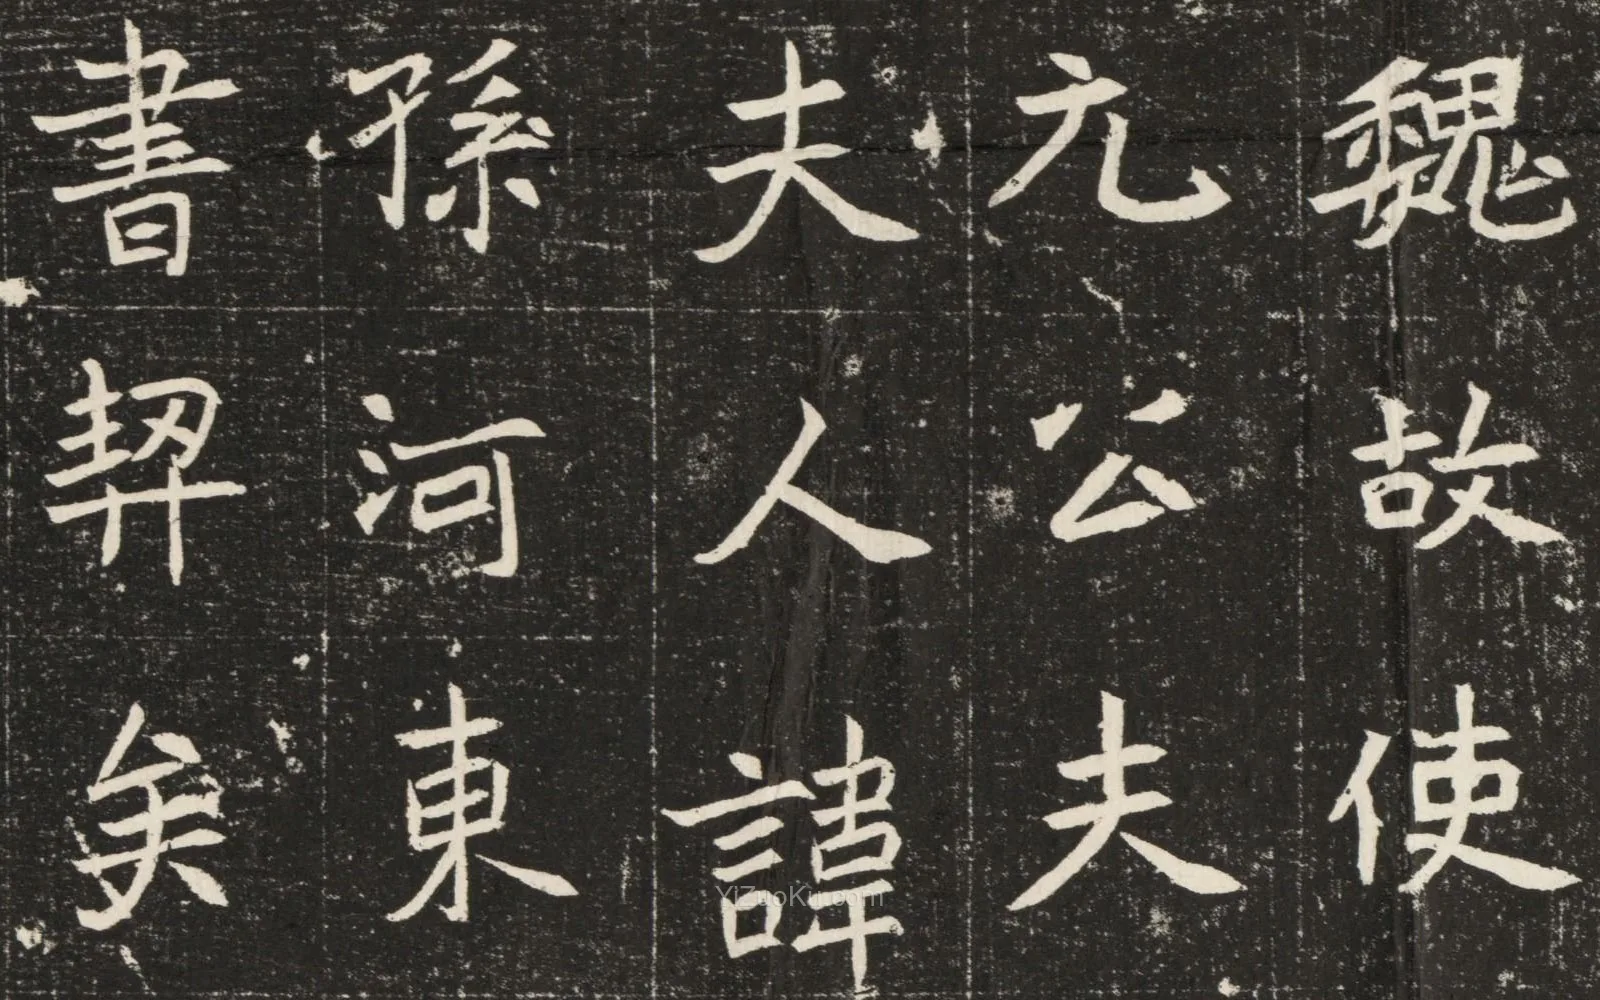 魏故使
元公夫
夫人諱
孫河東
書契矣
YiZuoKu.com